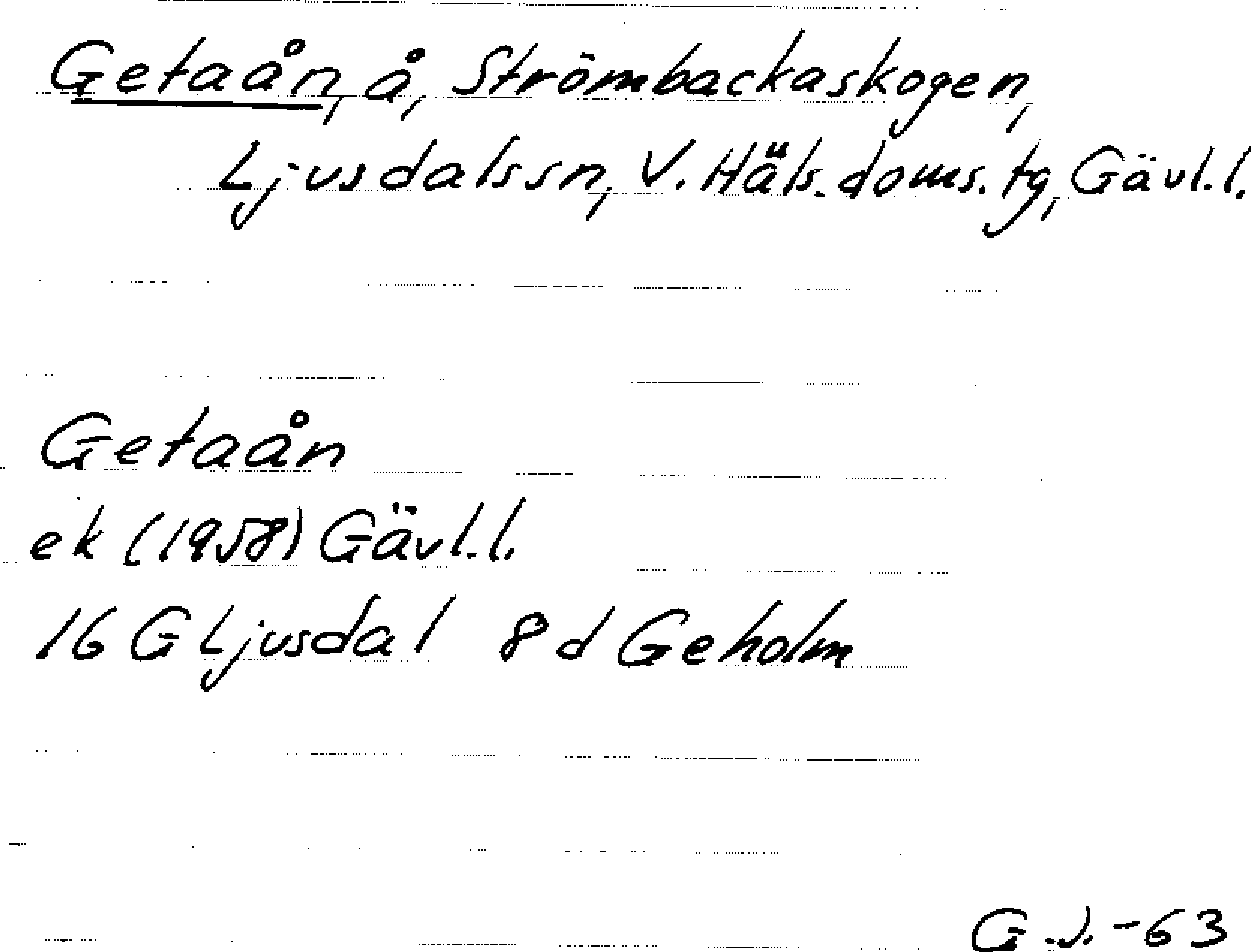 Getaån, å, Strömbackaskogen,
Ljusdals sn, V. Häls. doms. tg, Gävl. l.
Getaån
ek (1958) Gävl. l.
16 G Ljusdal 8 d Geholm
G. J. -63